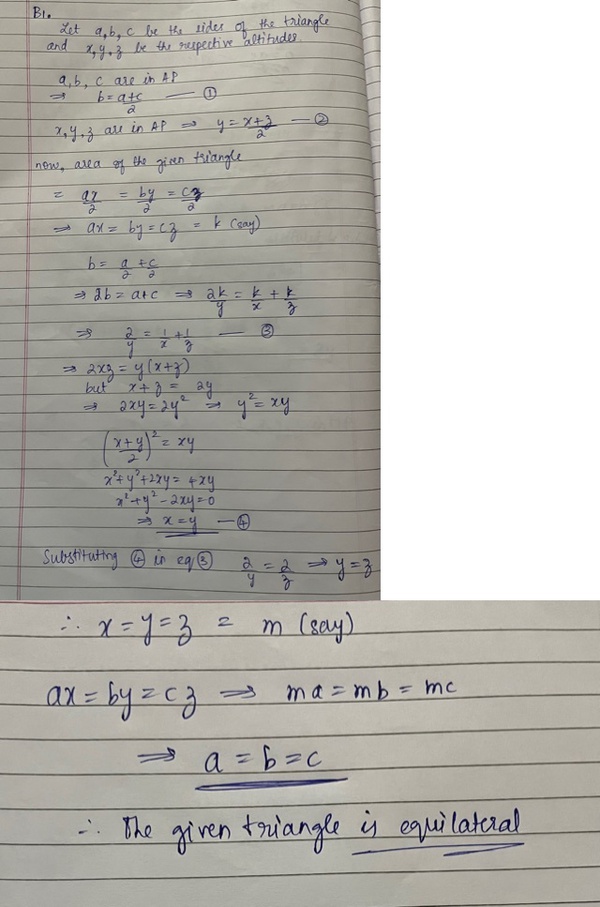 B1.
Let a, b, c be the sides of the triangle
and x, y, z be the respective altitudes.
a, b, c are in AP
⇒ b = a+c/2 — ①
x, y, z are in AP ⇒ y = x+z/2 — ②
now, area of the given triangle
= ax/2 = by/2 = cz/2
⇒ ax = by = cz = k (say)
b = a/2 + c/2
⇒ 2b = a+c ⇒ 2k/y = k/x + k/z
⇒ 2/y = 1/x + 1/z — ③
⇒ 2xz = y(x+z)
but x+z = 2y
⇒ 2xy = 2y² ⇒ y² = xy
(x+y/2)² = xy
x²+y²+2xy = 4xy
x²+y²-2xy=0
⇒ x=y — ④
Substituting ④ in eq ③ 2/y = 2/z ⇒ y=z
∴ x=y=z = m (say)
ax=by=cz ⇒ ma=mb=mc
⇒ a=b=c
∴ The given triangle is equilateral